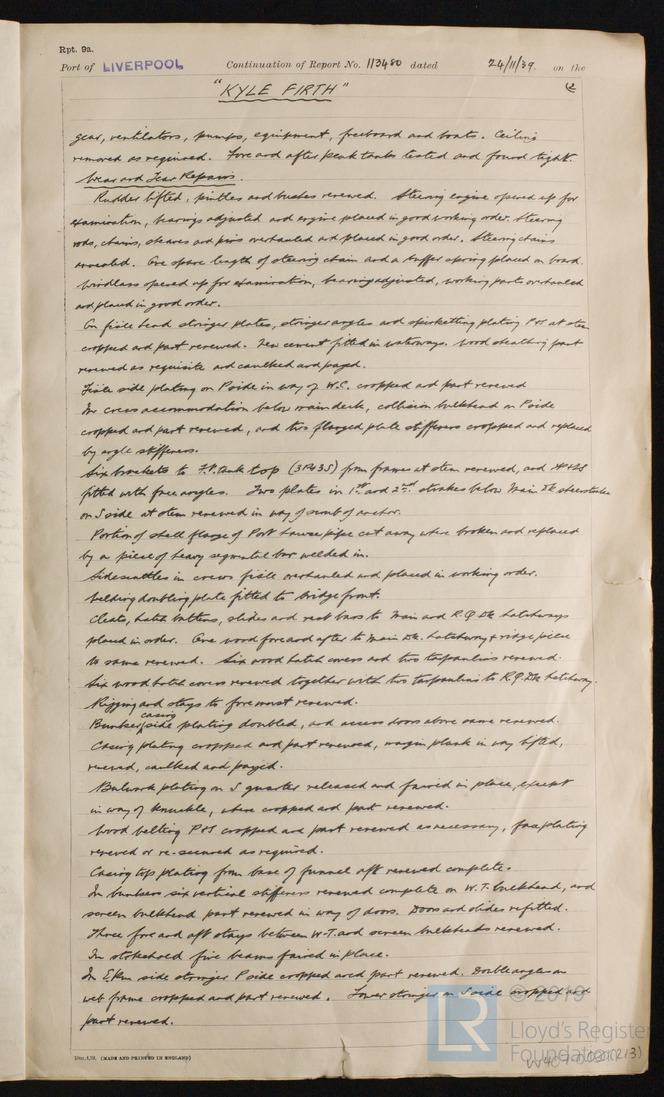 Rpt. 9a.
Port of LIVERPOOL Continuation of Report No. 113480 dated 24/11/39. on the
"KYLE FIRTH" (2
gear, ventilators, pumps, equipment, freeboard and boats. Ceiling
removed as required. Fore and after peak tanks tested and found tight.
Wear and Tear Repairs.
Rudder lifted, pintles and bushes renewed. Steering engine opened up for
examination, bearings adjusted and engine placed in good working order. Steering
rods, chains, sheaves and pins overhauled and placed in good order. Steering chains
annealed. One spare length of steering chain and a buffer spring placed on board.
Windlass opened up for examination, bearing adjusted, working parts overhauled
and placed in good order.
On fo'c'sle head stringer plates, stringer angles and spirketting plating P&S at stem
cropped and part renewed. New cement fitted in waterways. Wood sheathing part
renewed as requisite and caulked and payed.
side plating on P side in way of W.C. cropped and part renewed
In crews accommodation below main deck, collision bulkhead on P side
cropped and part renewed, and two flanged plate stiffeners cropped and replaced
by angle stiffeners.
Six brackets to F.P. tank top (3P&3S) from frames at stem renewed, and
fitted with free angles. Two plates in 1st and 2nd strakes below Main Dk sheerstrake
on S side at stem renewed in way of anchor.
Portion of shell flange of Port hawse pipe cut away where broken and replaced
by a piece of heavy segmental bar welded in.
Sidescuttles in crews overhauled and placed in working order.
Welding doubling plate fitted to bridge front.
Cleats, hatch battens, slides and rest bars to Main and R.Q. Dk hatchways
placed in order. One wood fore and after to Main Dk. hatchway & ridge piece
to same renewed. Six wood hatch covers and two tarpaulins renewed.
Six wood hatch covers renewed together with two tarpaulins to R.Q. Dk hatchway.
Rigging and stays to foremast renewed.
Bunker casing side plating doubled, and access doors above same renewed.
Casing plating cropped and part renewed, margin plank in way lifted,
renewed, caulked and payed.
Bulwark plating on S quarter released and faired in place, except
in way of knuckle, where cropped and part renewed.
Wood belting P&S cropped and part renewed as necessary, face plating
renewed or re-secured as required.
Casing top plating from base of funnel aft renewed complete.
In bunkers six vertical stiffeners renewed complete on W.T. bulkhead, and
screen bulkhead part renewed in way of doors. Doors and slides refitted.
Three fore and aft stays between W.T. and screen bulkheads renewed.
In stokehold five beams faired in place.
In E.Rm side stringer P side cropped and part renewed. Double angles on
web frame cropped and part renewed. Lower stringer on S side cropped and
part renewed.
(MADE AND PRINTED IN ENGLAND)
© 2019
LR
Lloyd's Register
Foundation